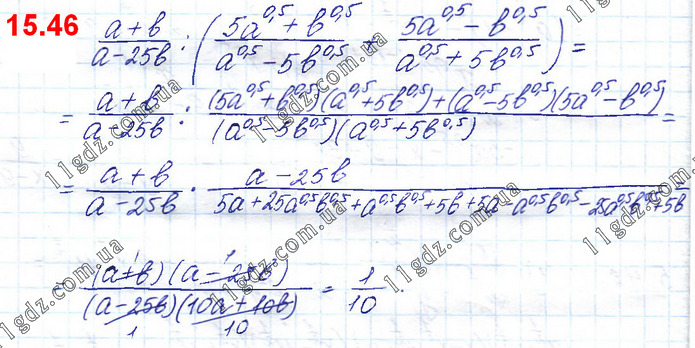 15.46
(a+b)/(a-25b) : ((5a^0,5+b^0,5)/(a^0,5-5b^0,5) + (5a^0,5-b^0,5)/(a^0,5+5b^0,5)) =
= (a+b)/(a-25b) : ((5a^0,5+b^0,5)(a^0,5+5b^0,5)+(a^0,5-5b^0,5)(5a^0,5-b^0,5))/((a^0,5-5b^0,5)(a^0,5+5b^0,5)) =
= (a+b)/(a-25b) · (a-25b)/(5a+25a^0,5b^0,5+a^0,5b^0,5+5b+5a-a^0,5b^0,5-25a^0,5b^0,5+5b)
= ((a+b)(a-25b))/((a-25b)(10a+10b)) = 1/10.
11gdz.com.ua